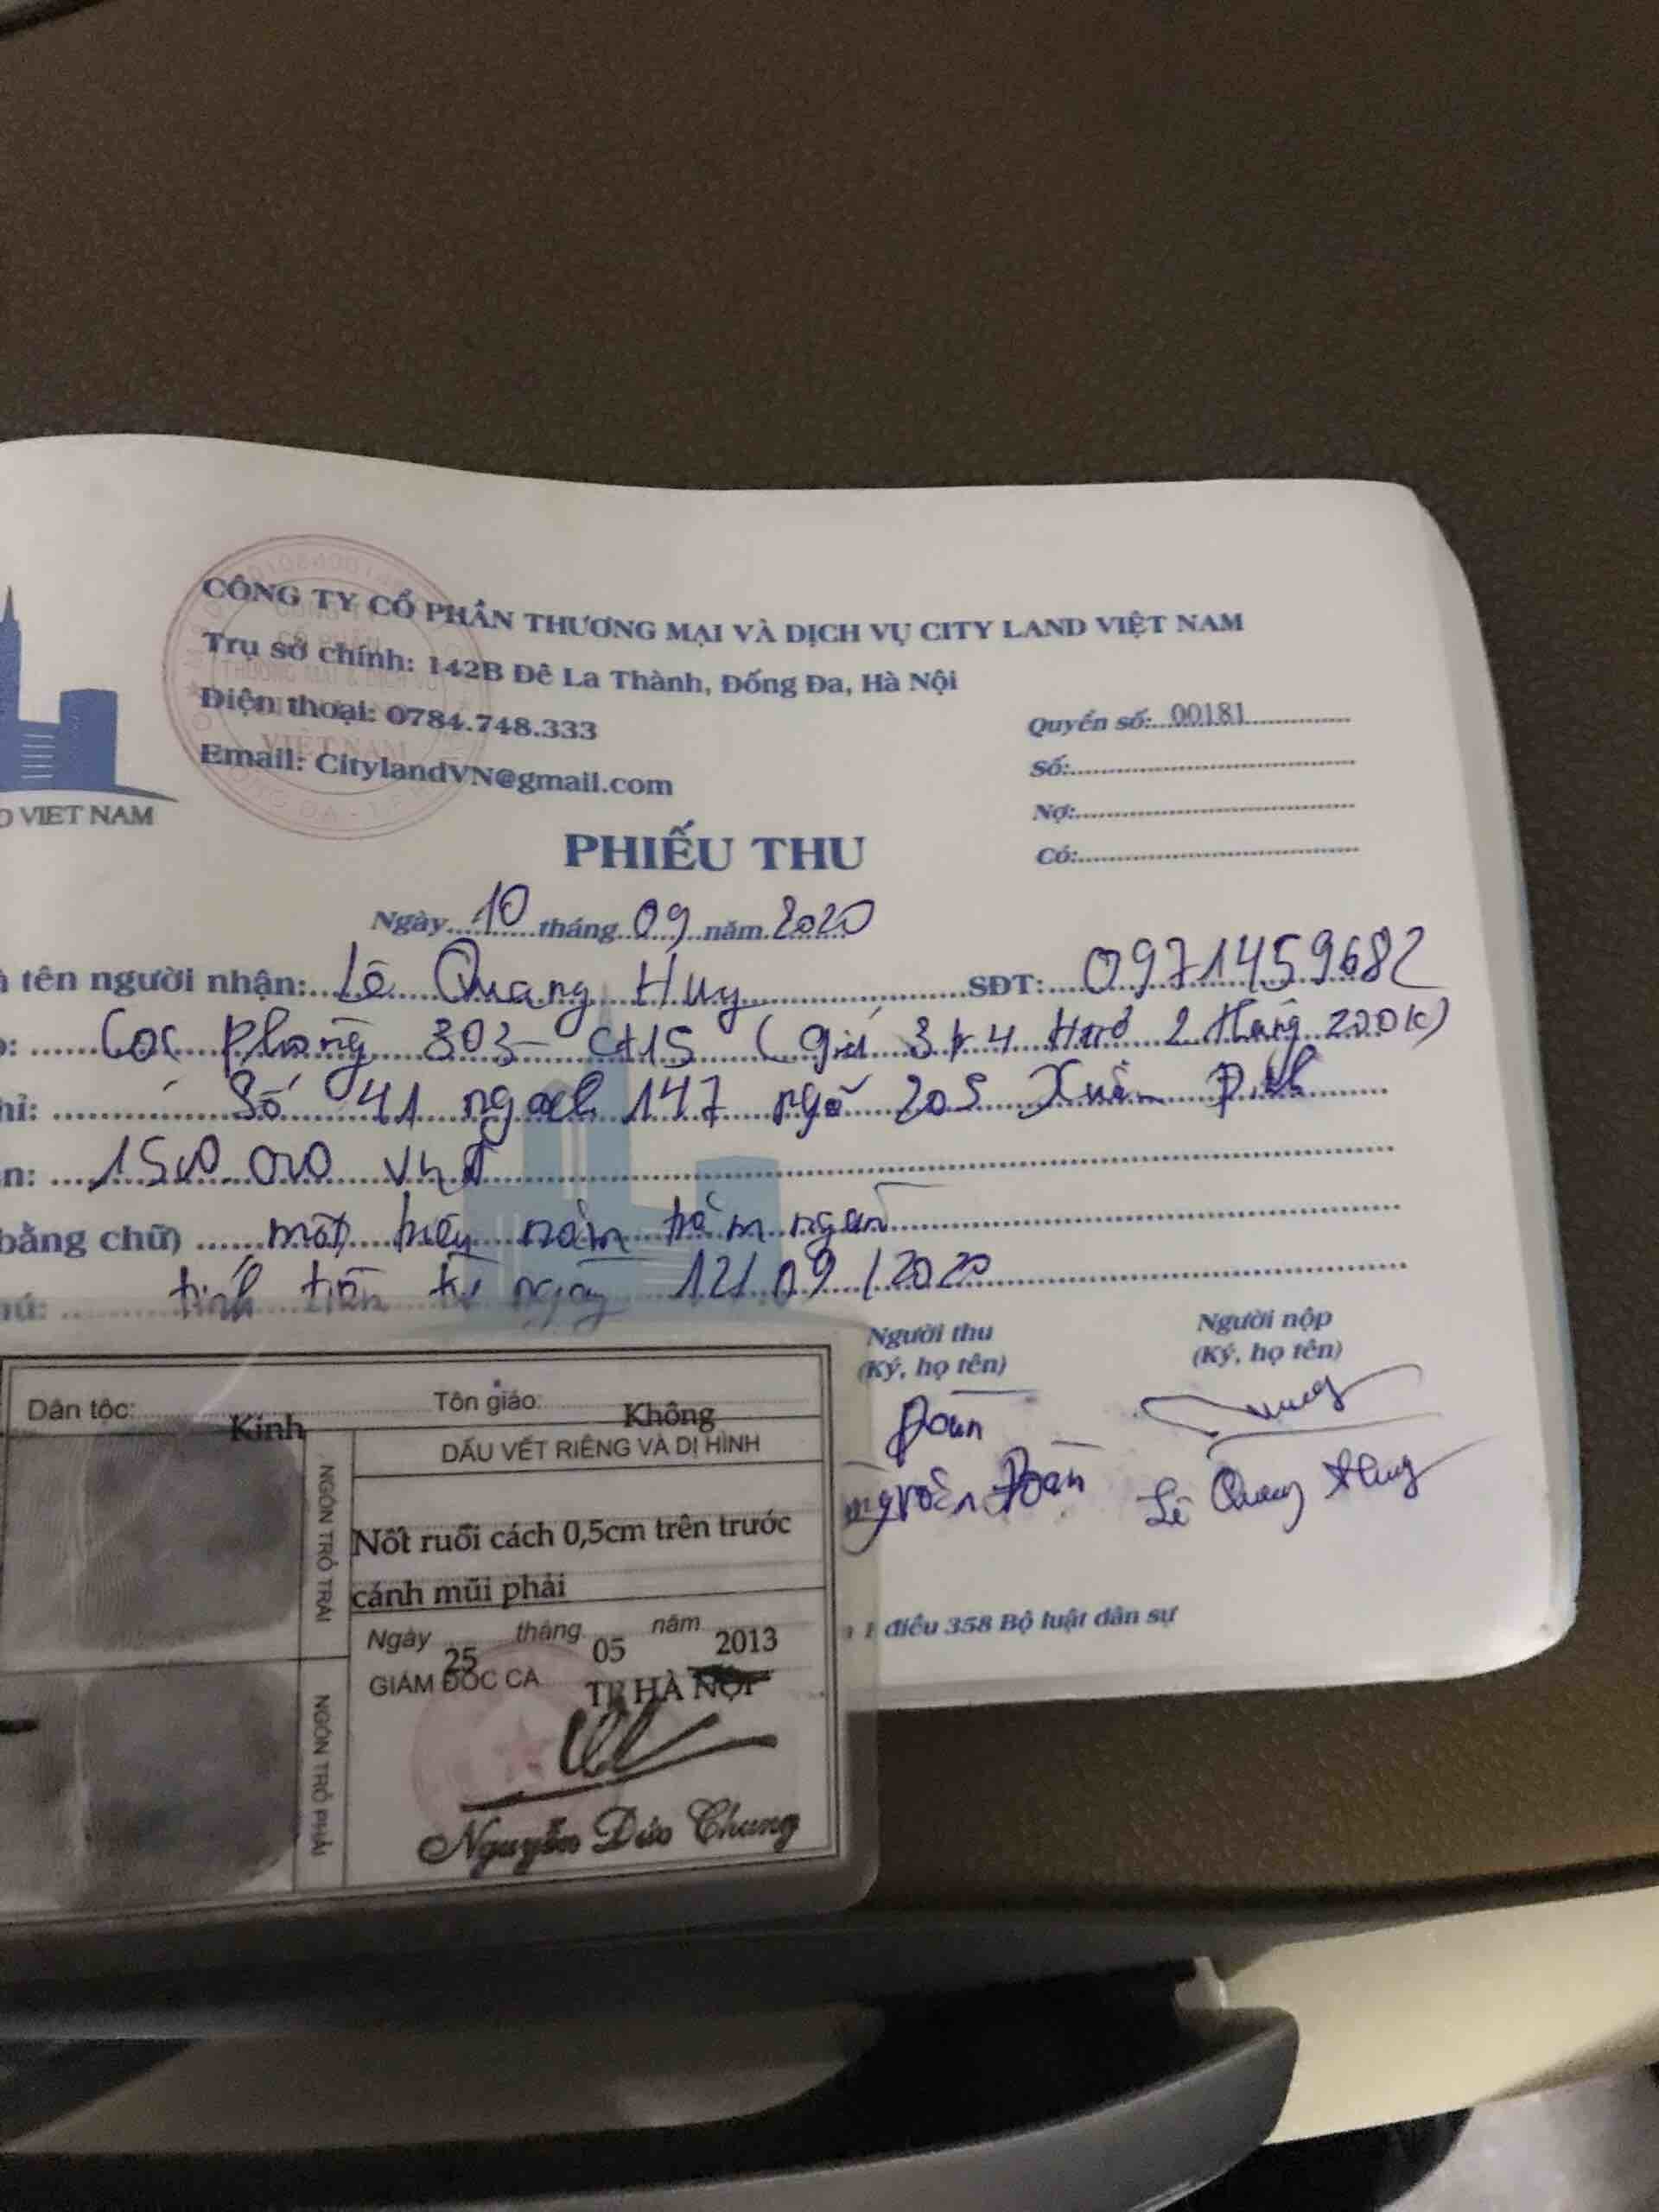 CÔNG TY CỔ PHẦN THƯƠNG MẠI VÀ DỊCH VỤ CITY LAND VIỆT NAM
Trụ sở chính: 142B Đê La Thành, Đống Đa, Hà Nội
Điện thoại: 0784.748.333
Email: CitylandVN@gmail.com
D VIET NAM
Quyển số: 00181
Số:
Nợ:
Có:
PHIẾU THU
Ngày 10 tháng 09 năm 2020
tên người nhận: Lê Quang Huy SĐT: 0971459682
Cọc Phòng 303 - CH15 ( giá 3tr4 2 tháng 200k)
hỉ: Số 41 ngách 147 ngõ 205 Xuân Đỉnh
n: 1500.000 vnđ
bằng chữ) một triệu năm trăm ngàn
hú: tính tiền từ ngày 12/09/2020
Người thu
(Ký, họ tên)
Người nộp
(Ký, họ tên)
Đoàn
Đoàn
Lê Quang Huy
điều 358 Bộ luật dân sự
Dân tộc: Kinh Tôn giáo: Không
DẤU VẾT RIÊNG VÀ DỊ HÌNH
NGÓN TRỎ TRÁI
Nốt ruồi cách 0,5cm trên trước
cánh mũi phải
Ngày 25 tháng 05 năm 2013
GIÁM ĐỐC CA TP HÀ NỘI
NGÓN TRỎ PHẢI
Nguyễn Đức Chung